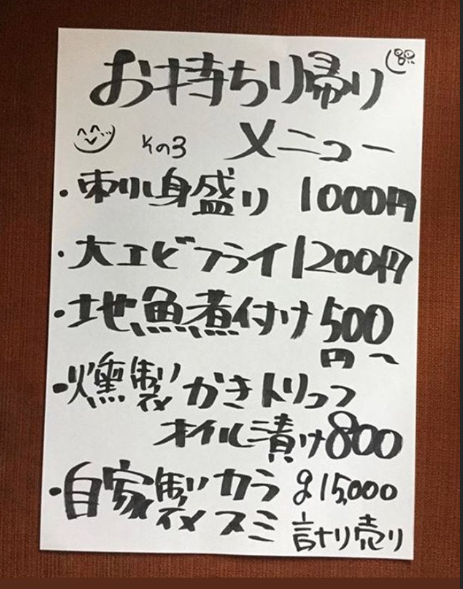 お持ち帰り
その3 メニュー
・刺し身盛り 1000円
・大エビフライ 1200円
・地魚煮付け 500
円〜
・燻製かきトリュフ
オイル漬け800
・自家製カラ g15,000
スミ 計り売り